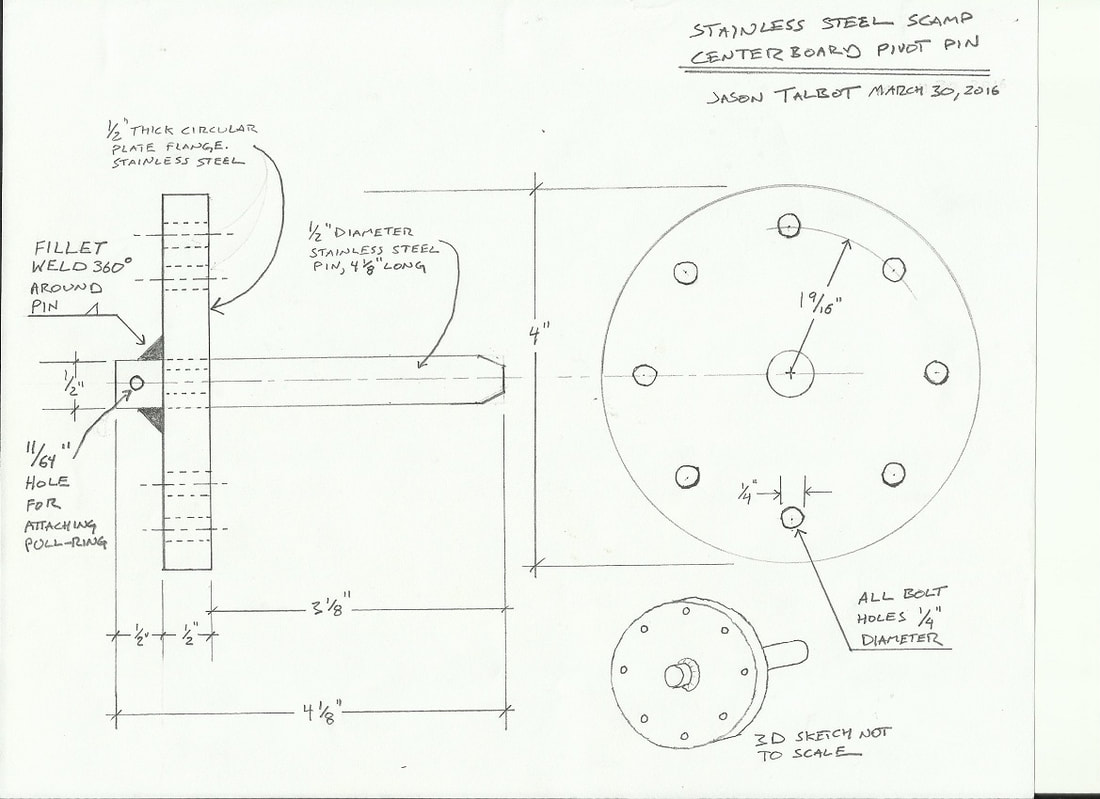 STAINLESS STEEL SCAMP
CENTERBOARD PIVOT PIN
JASON TALBOT MARCH 30, 2016
1/2" THICK CIRCULAR
PLATE FLANGE.
STAINLESS STEEL
1/2" DIAMETER
STAINLESS STEEL
PIN, 4 1/8" LONG
FILLET
WELD 360°
AROUND
PIN
1/2"
11/64"
HOLE
FOR
ATTACHING
PULL-RING
4"
1 9/16"
1/4"
ALL BOLT
HOLES 1/4"
DIAMETER
3 1/8"
1/2"
1/2"
4 1/8"
3D SKETCH NOT
TO SCALE